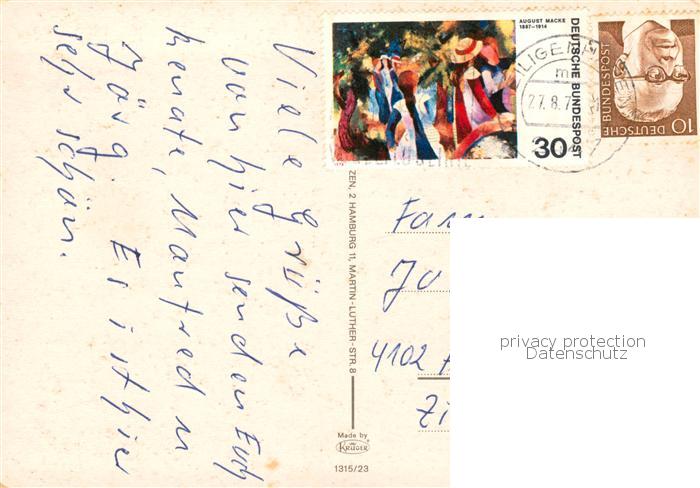 Viele Grüße
von hier senden Euch
Renate, Manfred u
Jörg. Es ist hier
sehr schön.
AUGUST MACKE
1887-1914
DEUTSCHE BUNDESPOST
30
DEUTSCHE
BUNDESPOST
10
27.8.7
ZEN, 2 HAMBURG 11, MARTIN-LUTHER-STR. 8
Fam
Jo
4102
Zi
privacy protection
Datenschutz
Made by
KRÜGER
1315/23